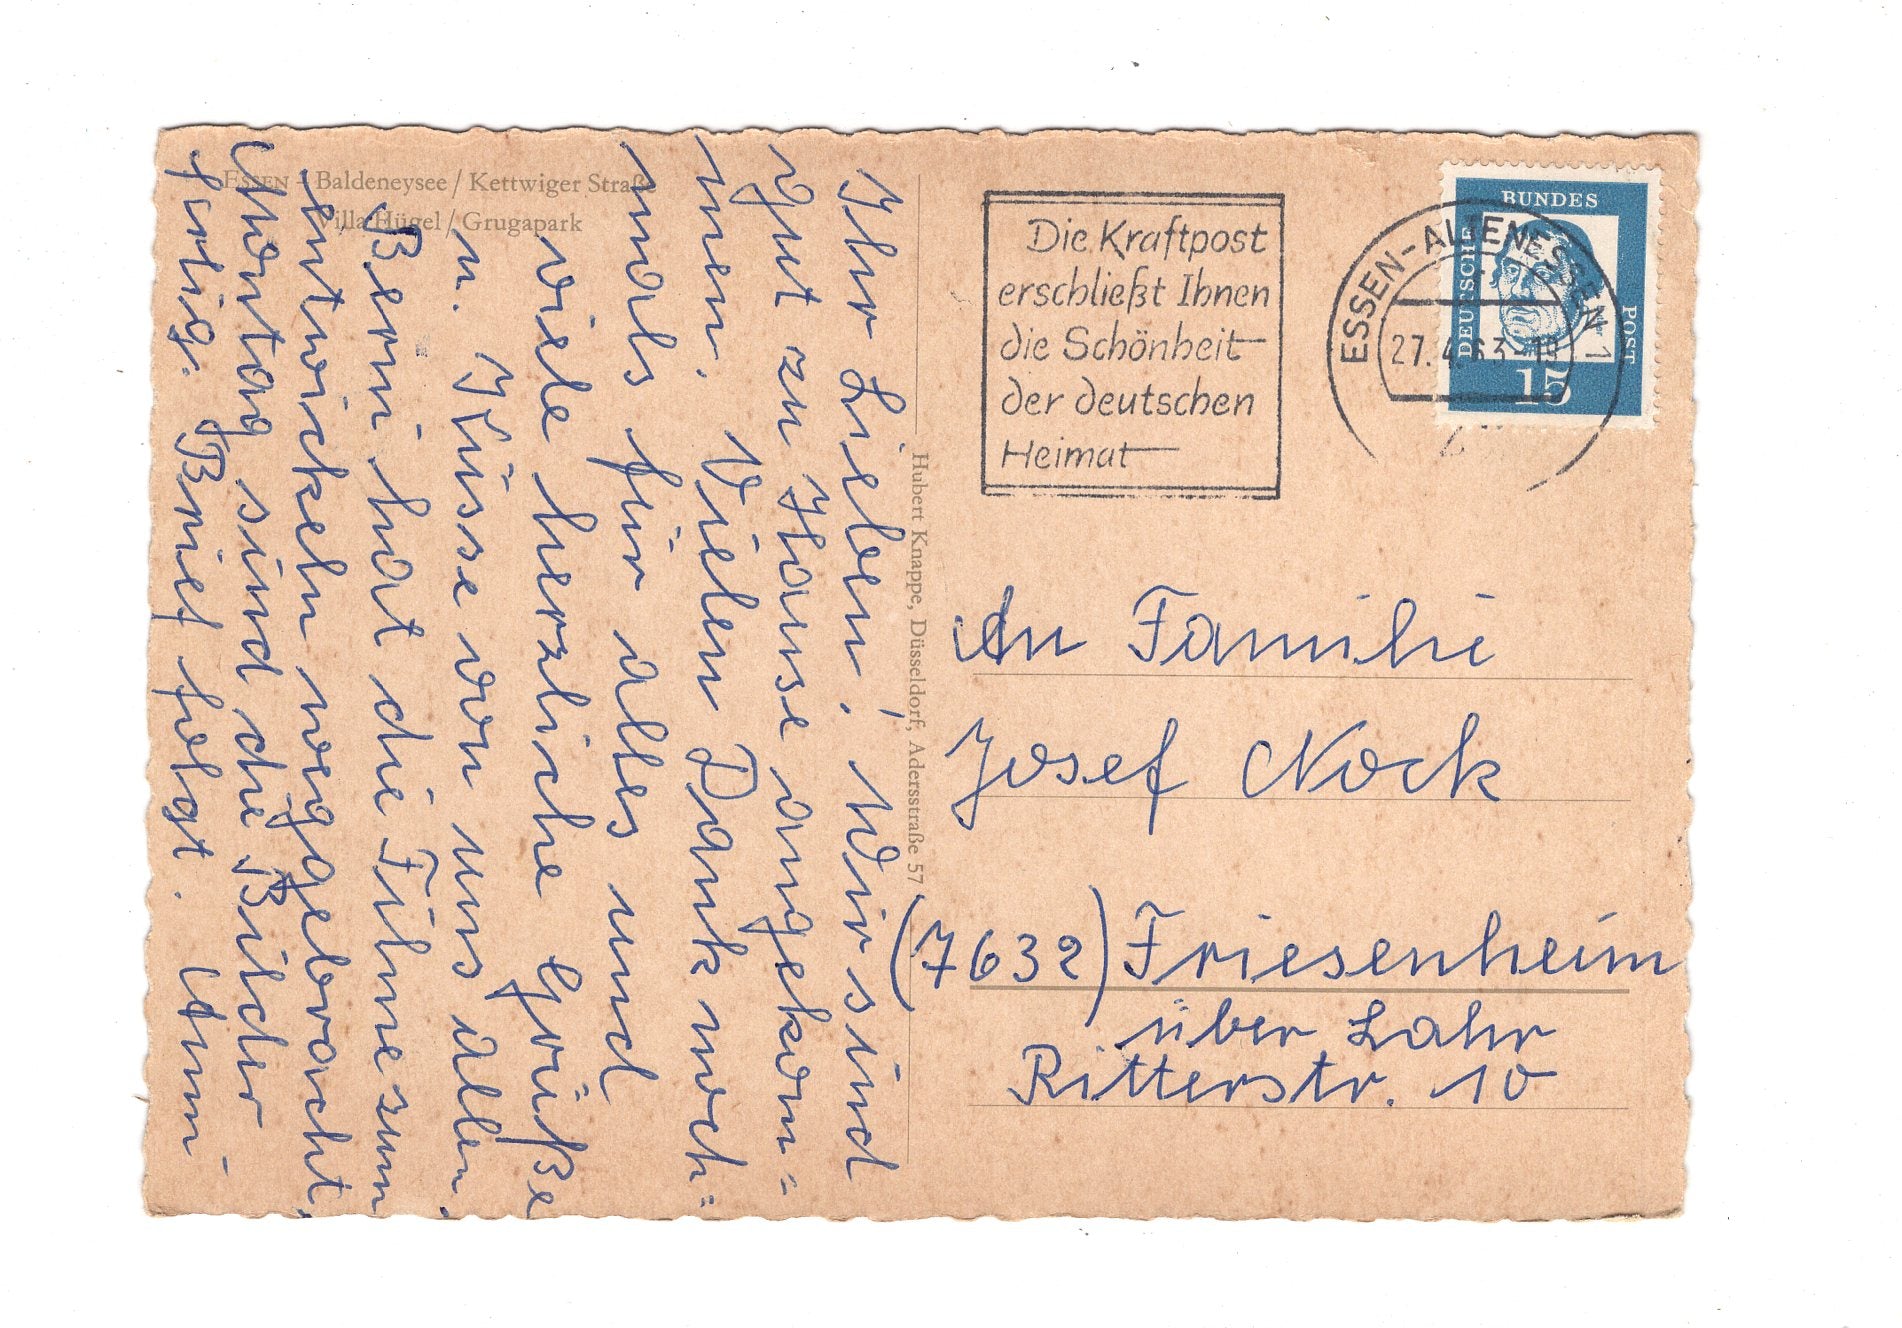 ESSEN – Baldeneysee / Kettwiger Straße
Villa Hügel / Grugapark
Ihr Lieben, Wir sind
gut zu Hause angekom=
men. Vielen Dank noch=
mals für alles und
viele herzliche Grüße
u. Küsse von uns allen.
Berni hat die Filme zum
entwickeln weggebracht,
Montag sind die Bilder
fertig. Brief folgt. Anni
Hubert Knappe, Düsseldorf, Adersstraße 57
Die Kraftpost
erschließt Ihnen
die Schönheit
der deutschen
Heimat
ESSEN-ALTENESSEN 1
27.4.63-19
DEUTSCHE
BUNDES
POST
15
An Familie
Josef Nock
(7632) Friesenheim
über Lahr
Ritterstr. 10